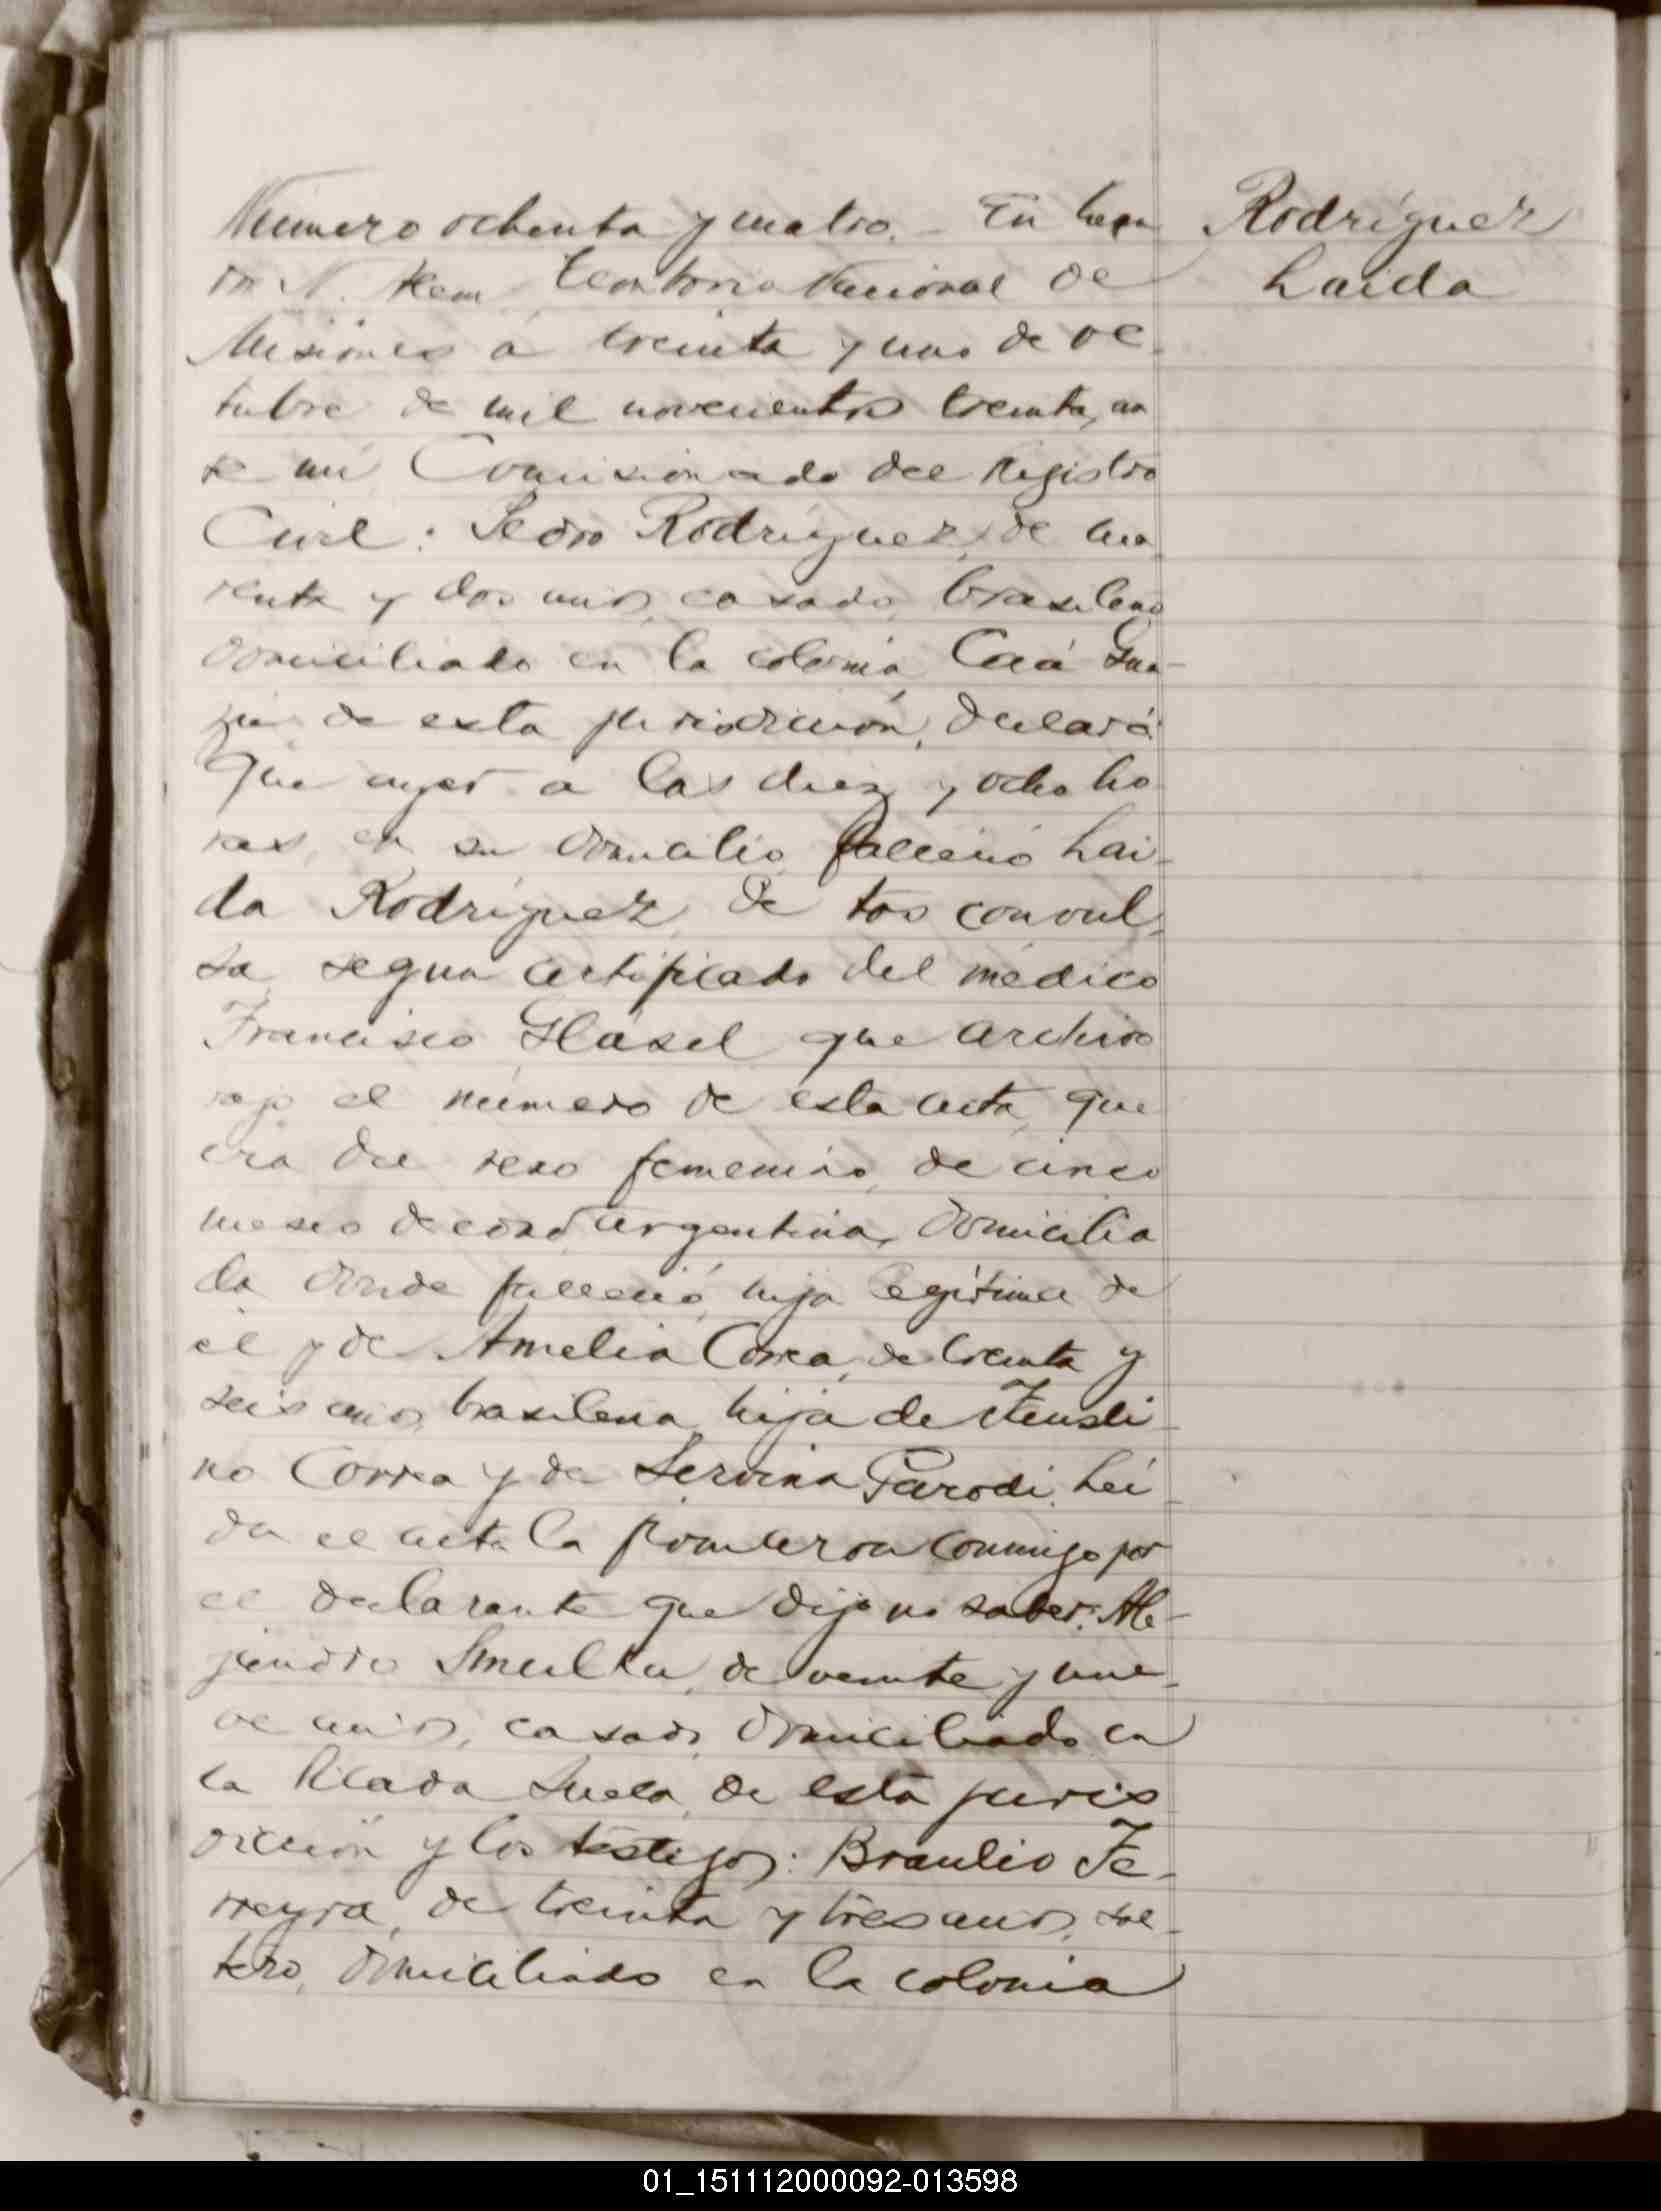 Número ochenta y cuatro. - En Lean
dro N. Alem, territorio Nacional de
Misiones á treinta y uno de oc-
tubre de mil novecientos treinta, an
te mi Comisionado del Registro
Civil: Pedro Rodríguez, de cua
renta y dos años, casado, brasileño
domiciliado en la colonia Caá Gua-
de esta jurisdicción, declaró:
Que ayer a las diez y ocho ho
ras, en su domicilio falleció Lai-
da Rodríguez, de tos convul-
sa, segun certificado del médico
Francisco Hásel que archivo
bajo el número de esta acta, que
era del sexo femenino, de cinco
meses de edad argentina, domicilia
da donde falleció, hija legítima de
él y de Amelia Correa, de treinta y
seis años, brasilena, hija de Fausti-
no Correa y de Servina Parodi. Leí-
da el acta la firmaron conmigo por
el declarante que dijo no saber: Ale-
jandro de veinte y nue-
ve años, casado, domiciliado en
la Picada Sueca, de esta juris
dicción y los testigos: Braulio Fe-
rreyra, de treinta y tres años, sol-
tero, domiciliado en la colonia
Rodríguez
Laida
01_151112000092-013598